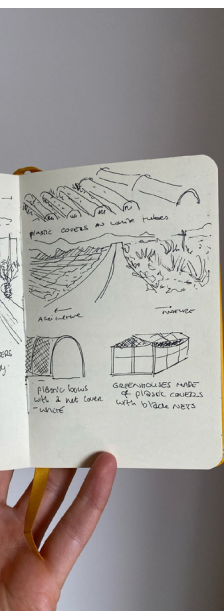 PLASTIC COVERS AS white tubes
NATURE
plastic bows
with a net cover
- WHITE
GREENHOUSES MADE
of plastic covers
with black NETS